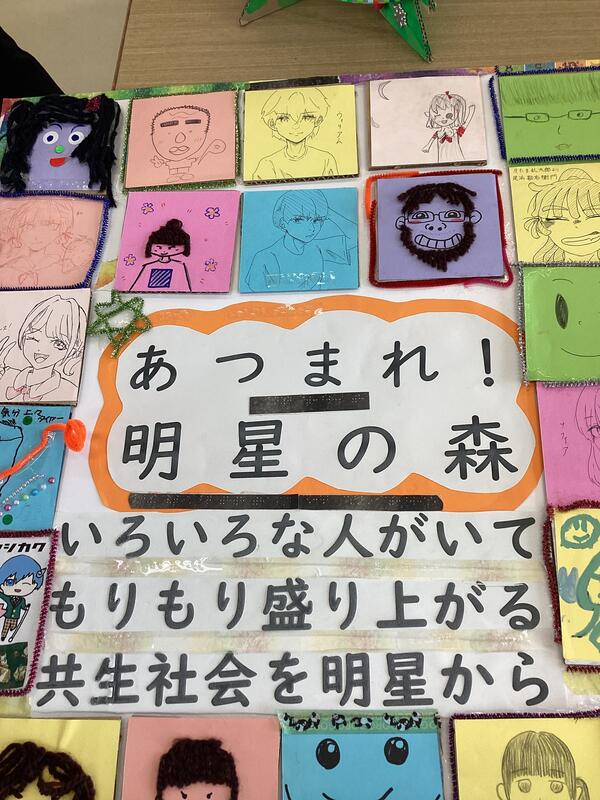 あつまれ！
明星の森
いろいろな人がいて
もりもり盛り上がる
共生社会を明星から